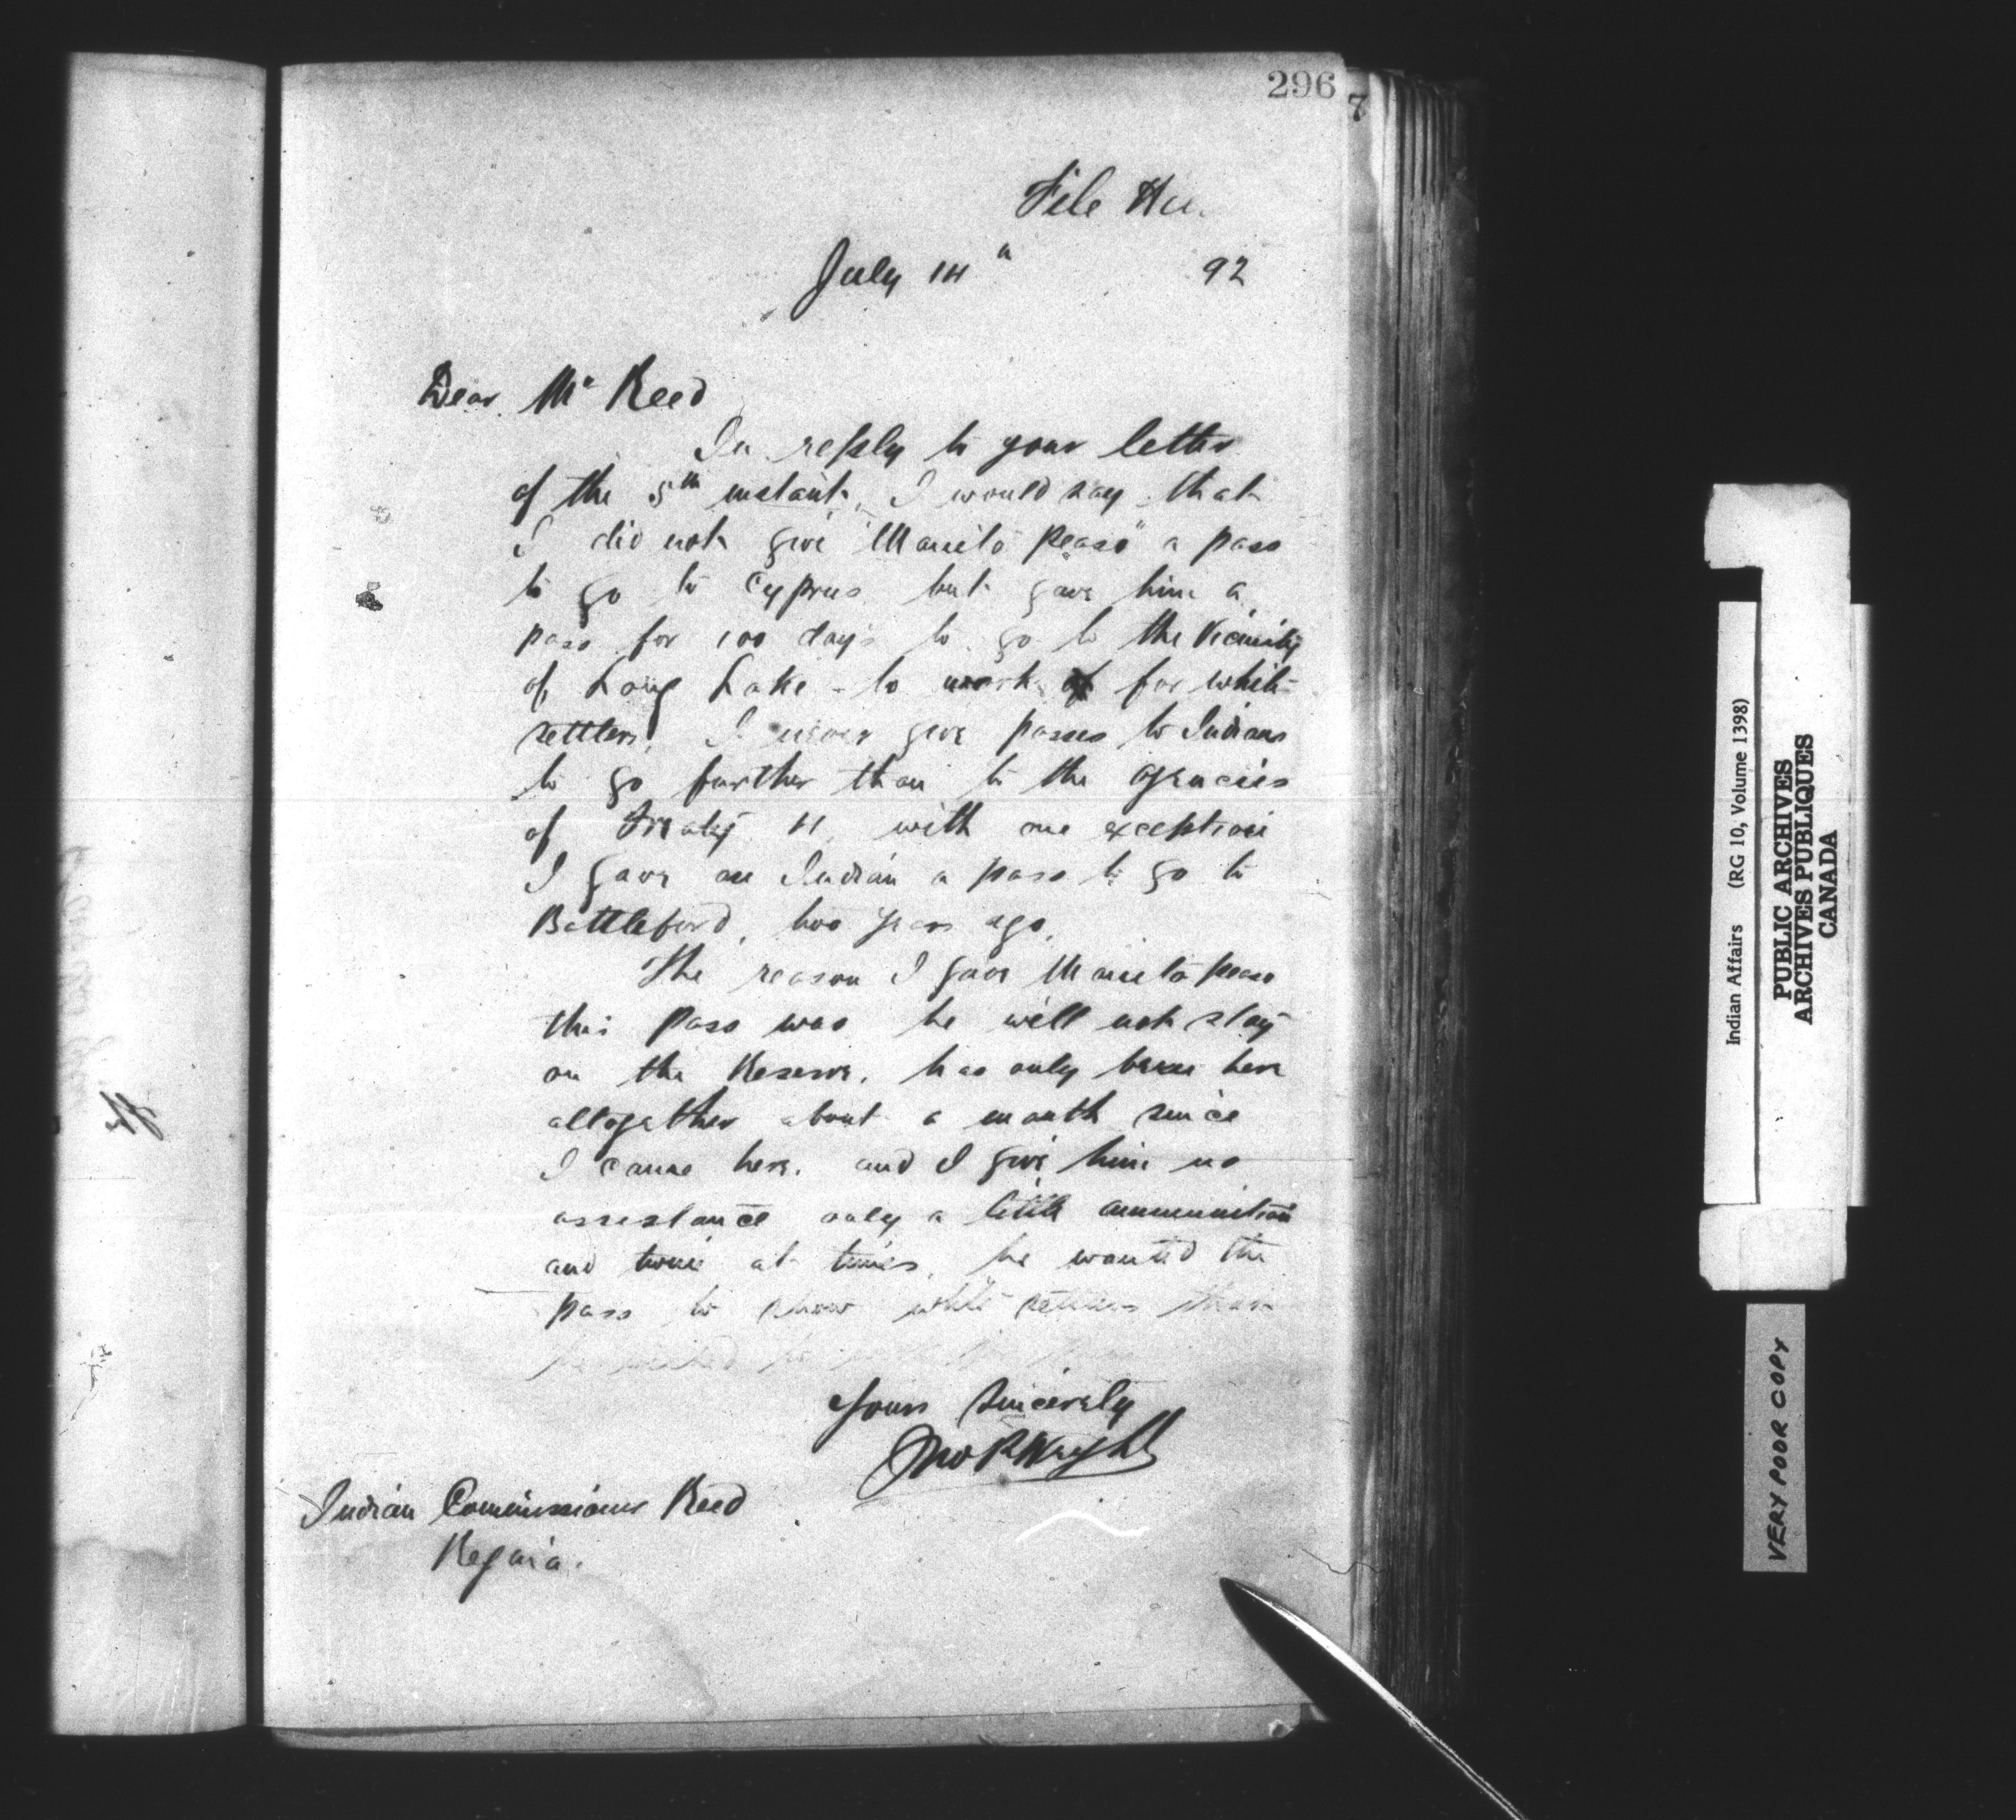 296
7
File Hi
July 14"
92
Dear Mr Reed
In reply to your letter
of the 5th instant, I would say that
I did not give "Manito Peaso" a pass
to go to Cyprus but gave him a
pass for 100 days to go to the Vicinity
of Long Lake - to work for white
settlers. I never give passes to Indians
to go further than to the agencies
of Treaty 4, with one exception
I gave an Indian a pass to go to
Battleford, two years ago.
The reason I gave Manito peaso
this pass was he will not stay
on the Reserve, has only been here
altogether about a month since
I came here. and I give him no
assistance only a little ammunition
and twine at times, he wanted the
pass to show white settlers that
he wanted to
Yours Sincerely
Jno P Wright
Indian Commissioner Reed
Regina.
Indian Affairs (RG 10, Volume 1398)
PUBLIC ARCHIVES
ARCHIVES PUBLIQUES
CANADA
VERY POOR COPY